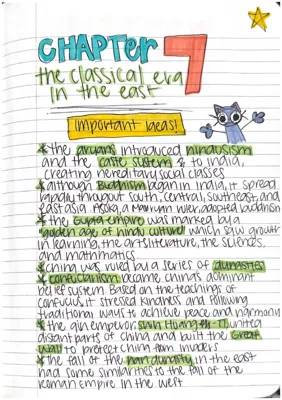 CHAPTER 7
the classical era
in the east
important ideas!
*the aryans introduced hinduism
and the caste system & to india,
creating hereditary social classes
*although Buddhism began in India, it spread
rapidly throughout south, central, southeast, and
east asia. Asoka, a Mauryan ruler, adopted buddhism
*the Gupta empire was marked by a
"golden age of hindu culture" which saw growth
in learning, the arts, literature, the sciences,
and mathematics
*china was ruled by a series of dynasties
*confucianism became china's dominant
belief system. Based on the teachings of
confucius it stressed kindness and following
traditional ways to achieve peace and harmony
*the qin emperor, united
distant parts of china and built the Great
Wall to protect china from invaders
*the fall of the han dynasty in the east
had some similarities to the fall of the
roman empire in the west